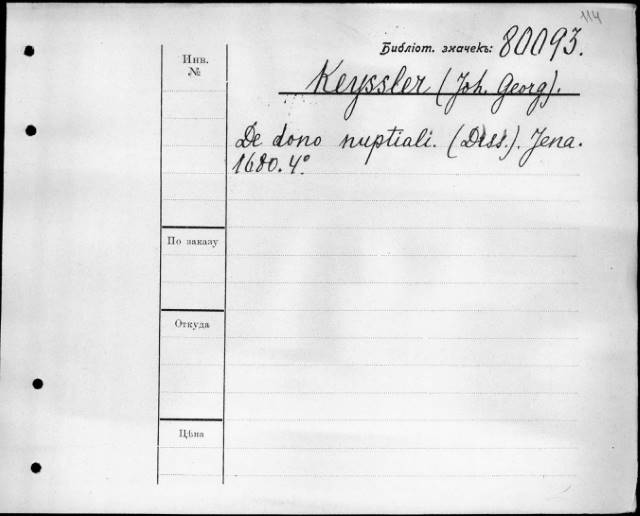 114
Библіот. значекъ: 80093.
Инв.
№
Keyssler (Joh. Georg).
De dono nuptiali. (Diss.). Jena.
1680. 4°
По заказу
Откуда
Цѣна